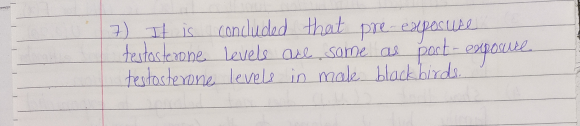 7) It is concluded that pre-exposure
testosterone levels are same as post-exposure
testosterone levels in male blackbirds.